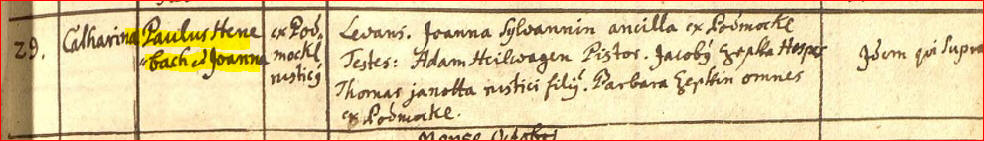 29. Catharina Paulus Hene
bach et Joanna
ex Pod,
mockl
rusticq
Levans. Joanna Sylvannin ancilla ex Podmockl
Testes: Adam Heilwagen Pistor. Jacobq Zepka Hospes
Thomas janotta rustici filiq. Barbara Zepkin omnes
ex Podmokle.
Idem qui Supra
Mense Octobri